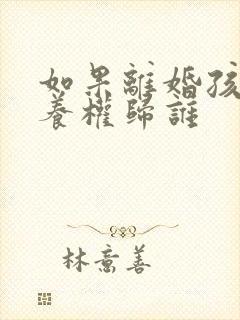 如果離婚孩
養權歸誰
林意善